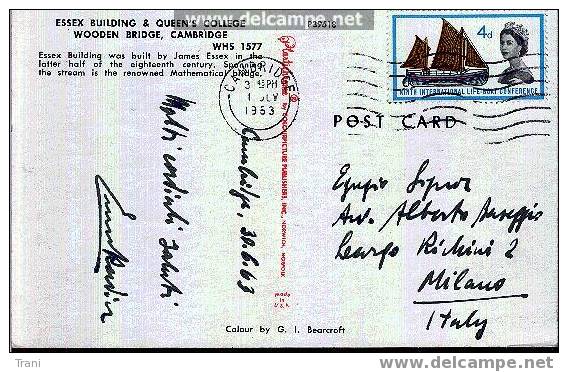 www.delcampe.net
ESSEX BUILDING & QUEEN'S COLLEGE
WOODEN BRIDGE, CAMBRIDGE
WHS 1577
P39618
Essex Building was built by James Essex in the
latter half of the eighteenth century. Spanning
the stream is the renowned Mathematical bridge.
4d
NINTH INTERNATIONAL LIFE-BOAT CONFERENCE
CAMBRIDGE
1963
by COLOURPICTURE PUBLISHERS, INC., NORWICH, NORFOLK
made
in
U.S.A.
POST CARD
Cambridge, 30.6.63
Molti cordiali saluti
Egregio Signor
Avv. Alberto
Largo Richini 2
Milano
Italy
Colour by G. I. Bearcroft
Trani
http://www.delcampe.net